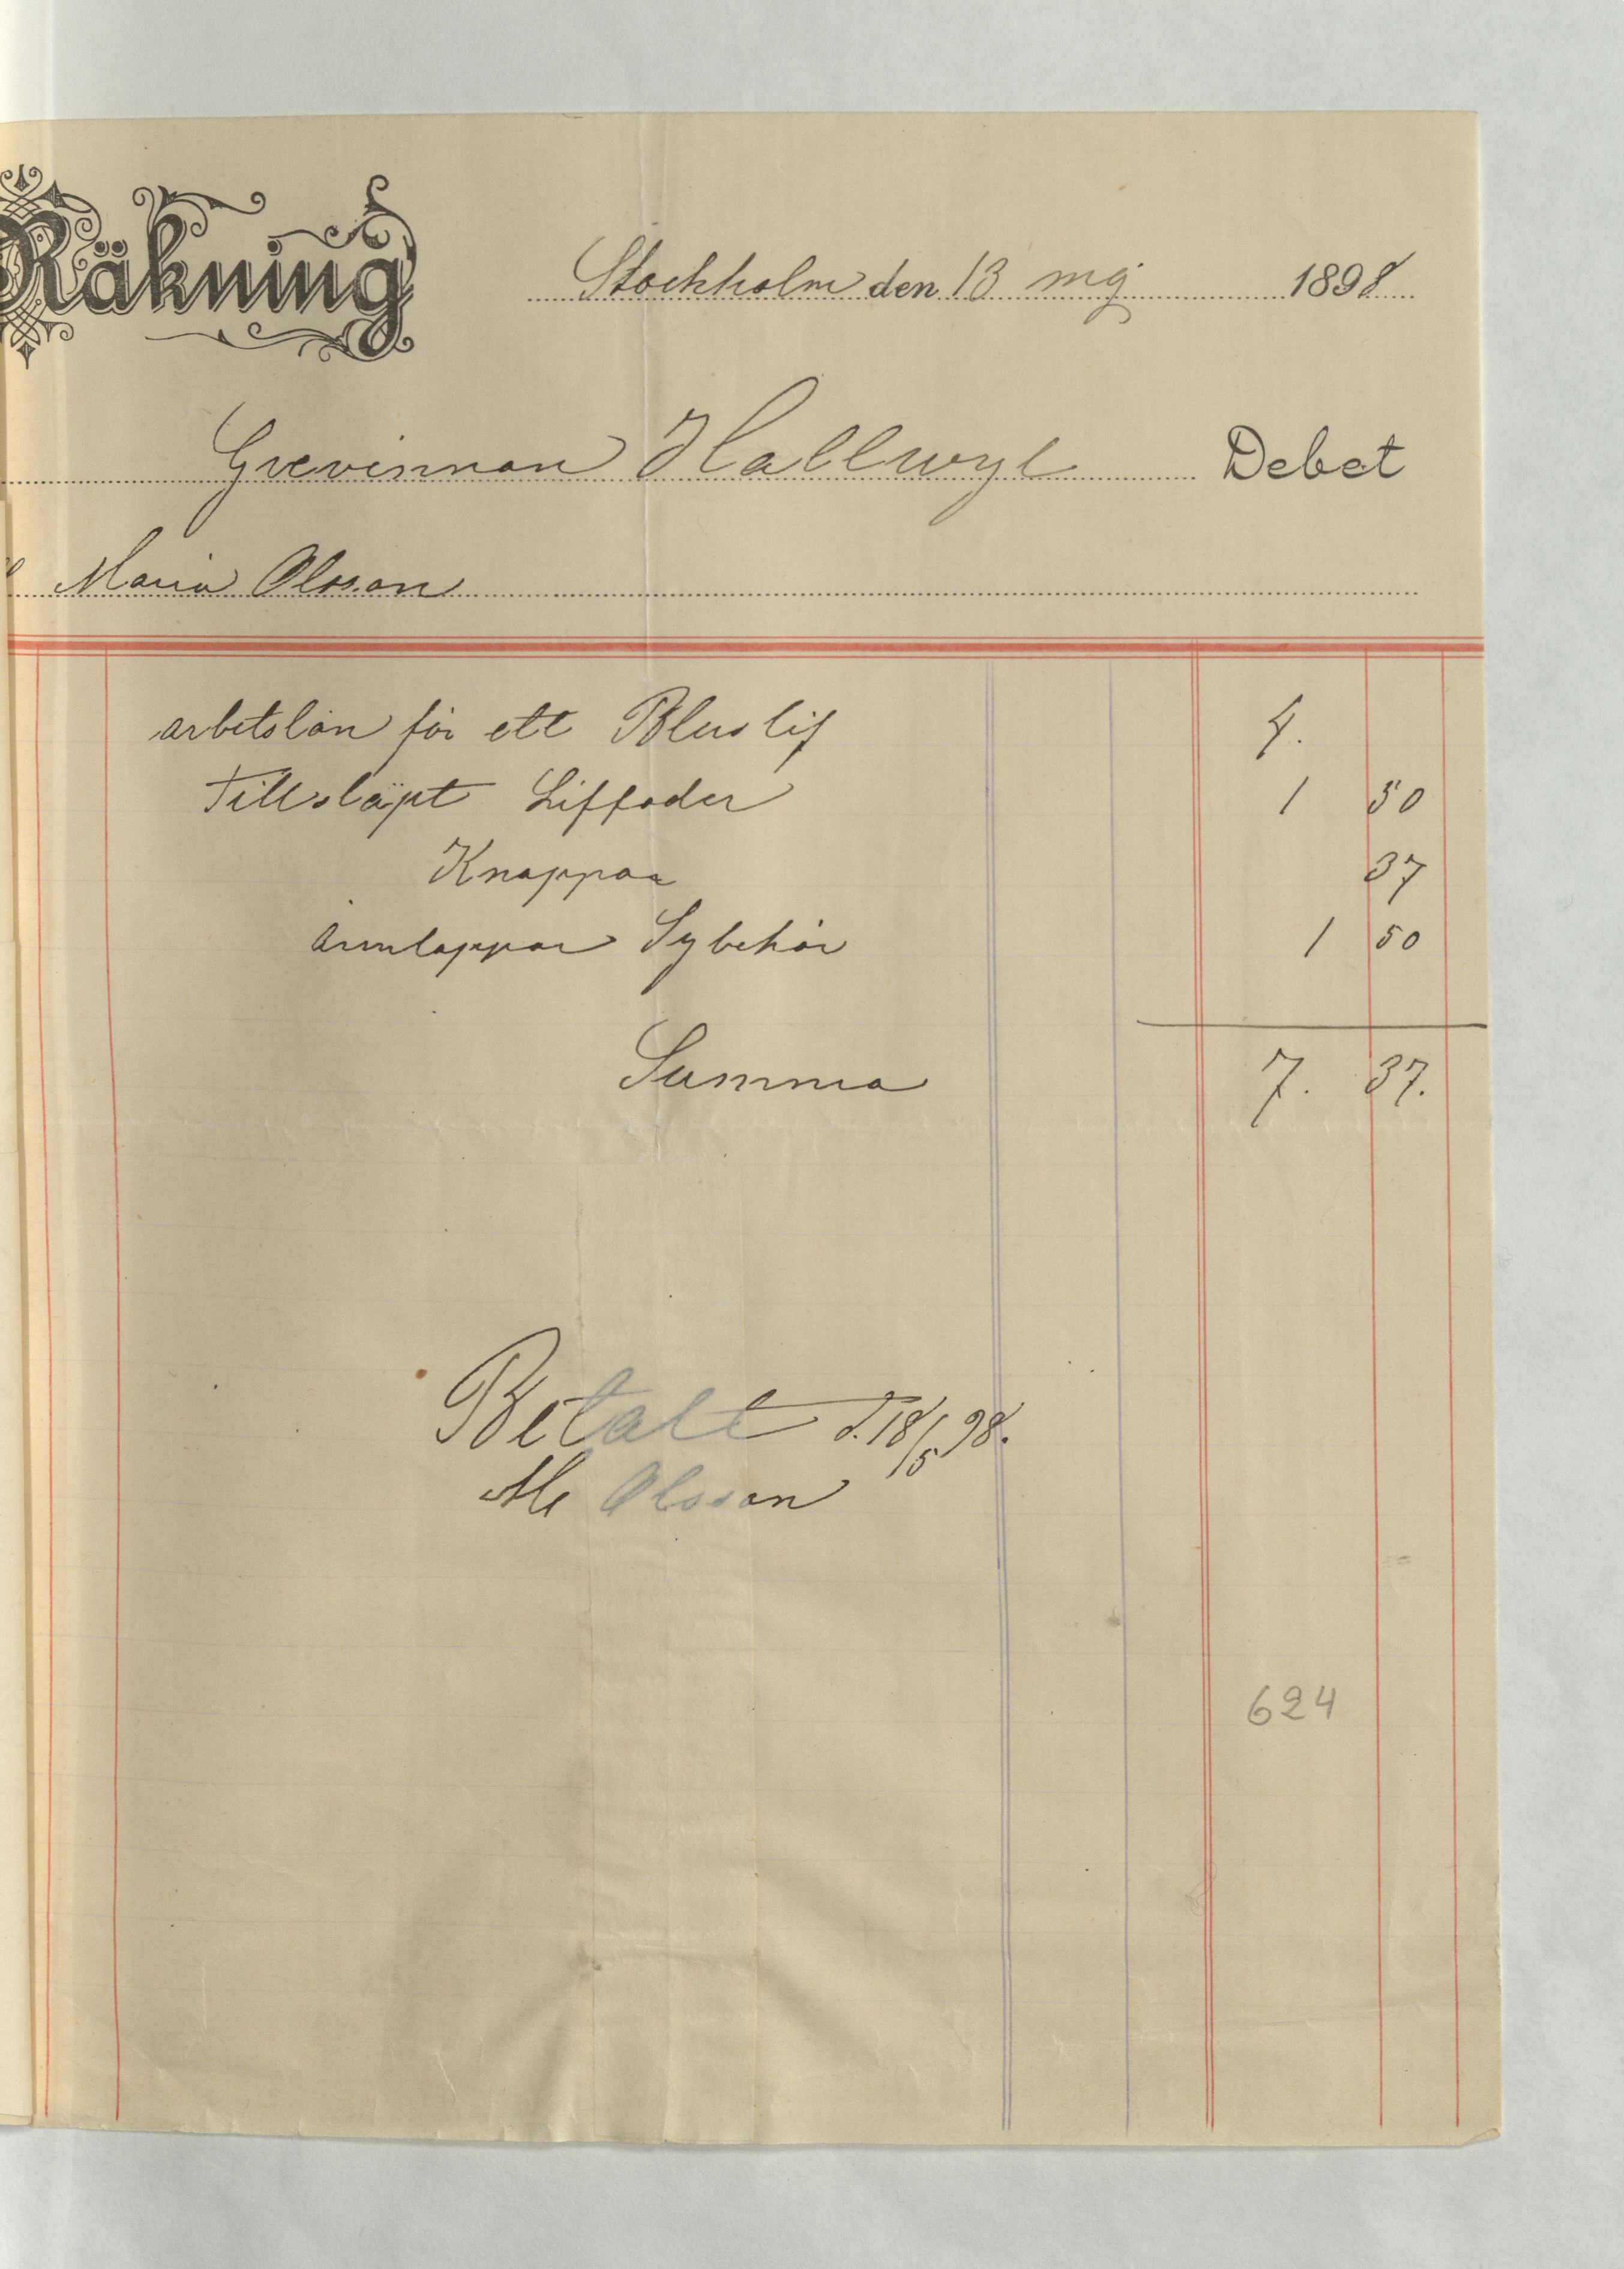 Räkning
Stockholm den 13 maj 1898
Grevinnan Hallwyl Debet
Maria Olsson
arbetslön för ett Blus lif 4.
Tillsläpt Liffoder 1 50
Knappar 37
ärmlappar Sybehör 1 50
Summa 7. 37.
Betalt d. 18/5 98.
M Olsson
624